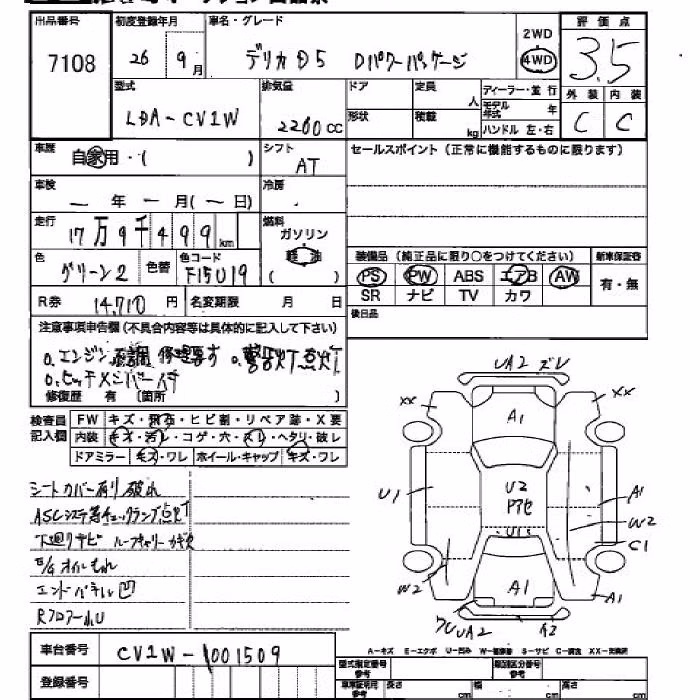 出品番号 7108
初度登録年月 26年 9月
車名・グレード デリカD5 Dパワーパッケージ
2WD 4WD
評価点 3.5
外装 C 内装 C
型式 LDA-CV1W
排気量 2200cc
ドア 形状
定員 人
積載 kg
ディーラー・並行
モデル年式 年
ハンドル 左・右
車歴 自家用・( )
シフト AT
セールスポイント(正常に機能するものに限ります)
車検 ー年ー月(ー日)
冷房
走行 17万9千499km
燃料 ガソリン 軽油 ( )
色 グリーン2 色替
色コード F15U19
装備品(純正品に限り○をつけてください)
PS PW ABS エアB AW
SR ナビ TV カワ
新車保証書 有・無
R券 14,710円
名変期限 月 日
後日品
注意事項申告欄(不具合内容等は具体的に記入して下さい)
o.エンジン不調 修理要す o.警告灯点灯
o.ヒッチメンバー付
修復歴 有 〔箇所 〕
検査員記入欄
FW キズ・飛石・ヒビ割・リペア跡・X要
内装 キズ・汚レ・コゲ・穴・スレ・ヘタリ・破レ
ドアミラー キズ・ワレ ホイール・キャップ キズ・ワレ
シートカバー有り 破れ
ASCシステム等チェックランプ点灯
下廻りサビ ルーフキャリーカギ欠
E/Gオイルもれ
エンドパネル凹
Rフロアー小U
UA2 ズレ
XX
XX
A1
U1
U2
アセ
U1
A1
W2
C1
W2
A1
A1
UA2
A2
A-キズ E-エクボ U-凹み W-補修跡 S-サビ C-腐食 XX-交換済
車台番号 CV1W-1001509
登録番号
型式指定番号 参考
類別区分番号 参考
車車証明用 参考 長さ cm 幅 cm 高さ cm